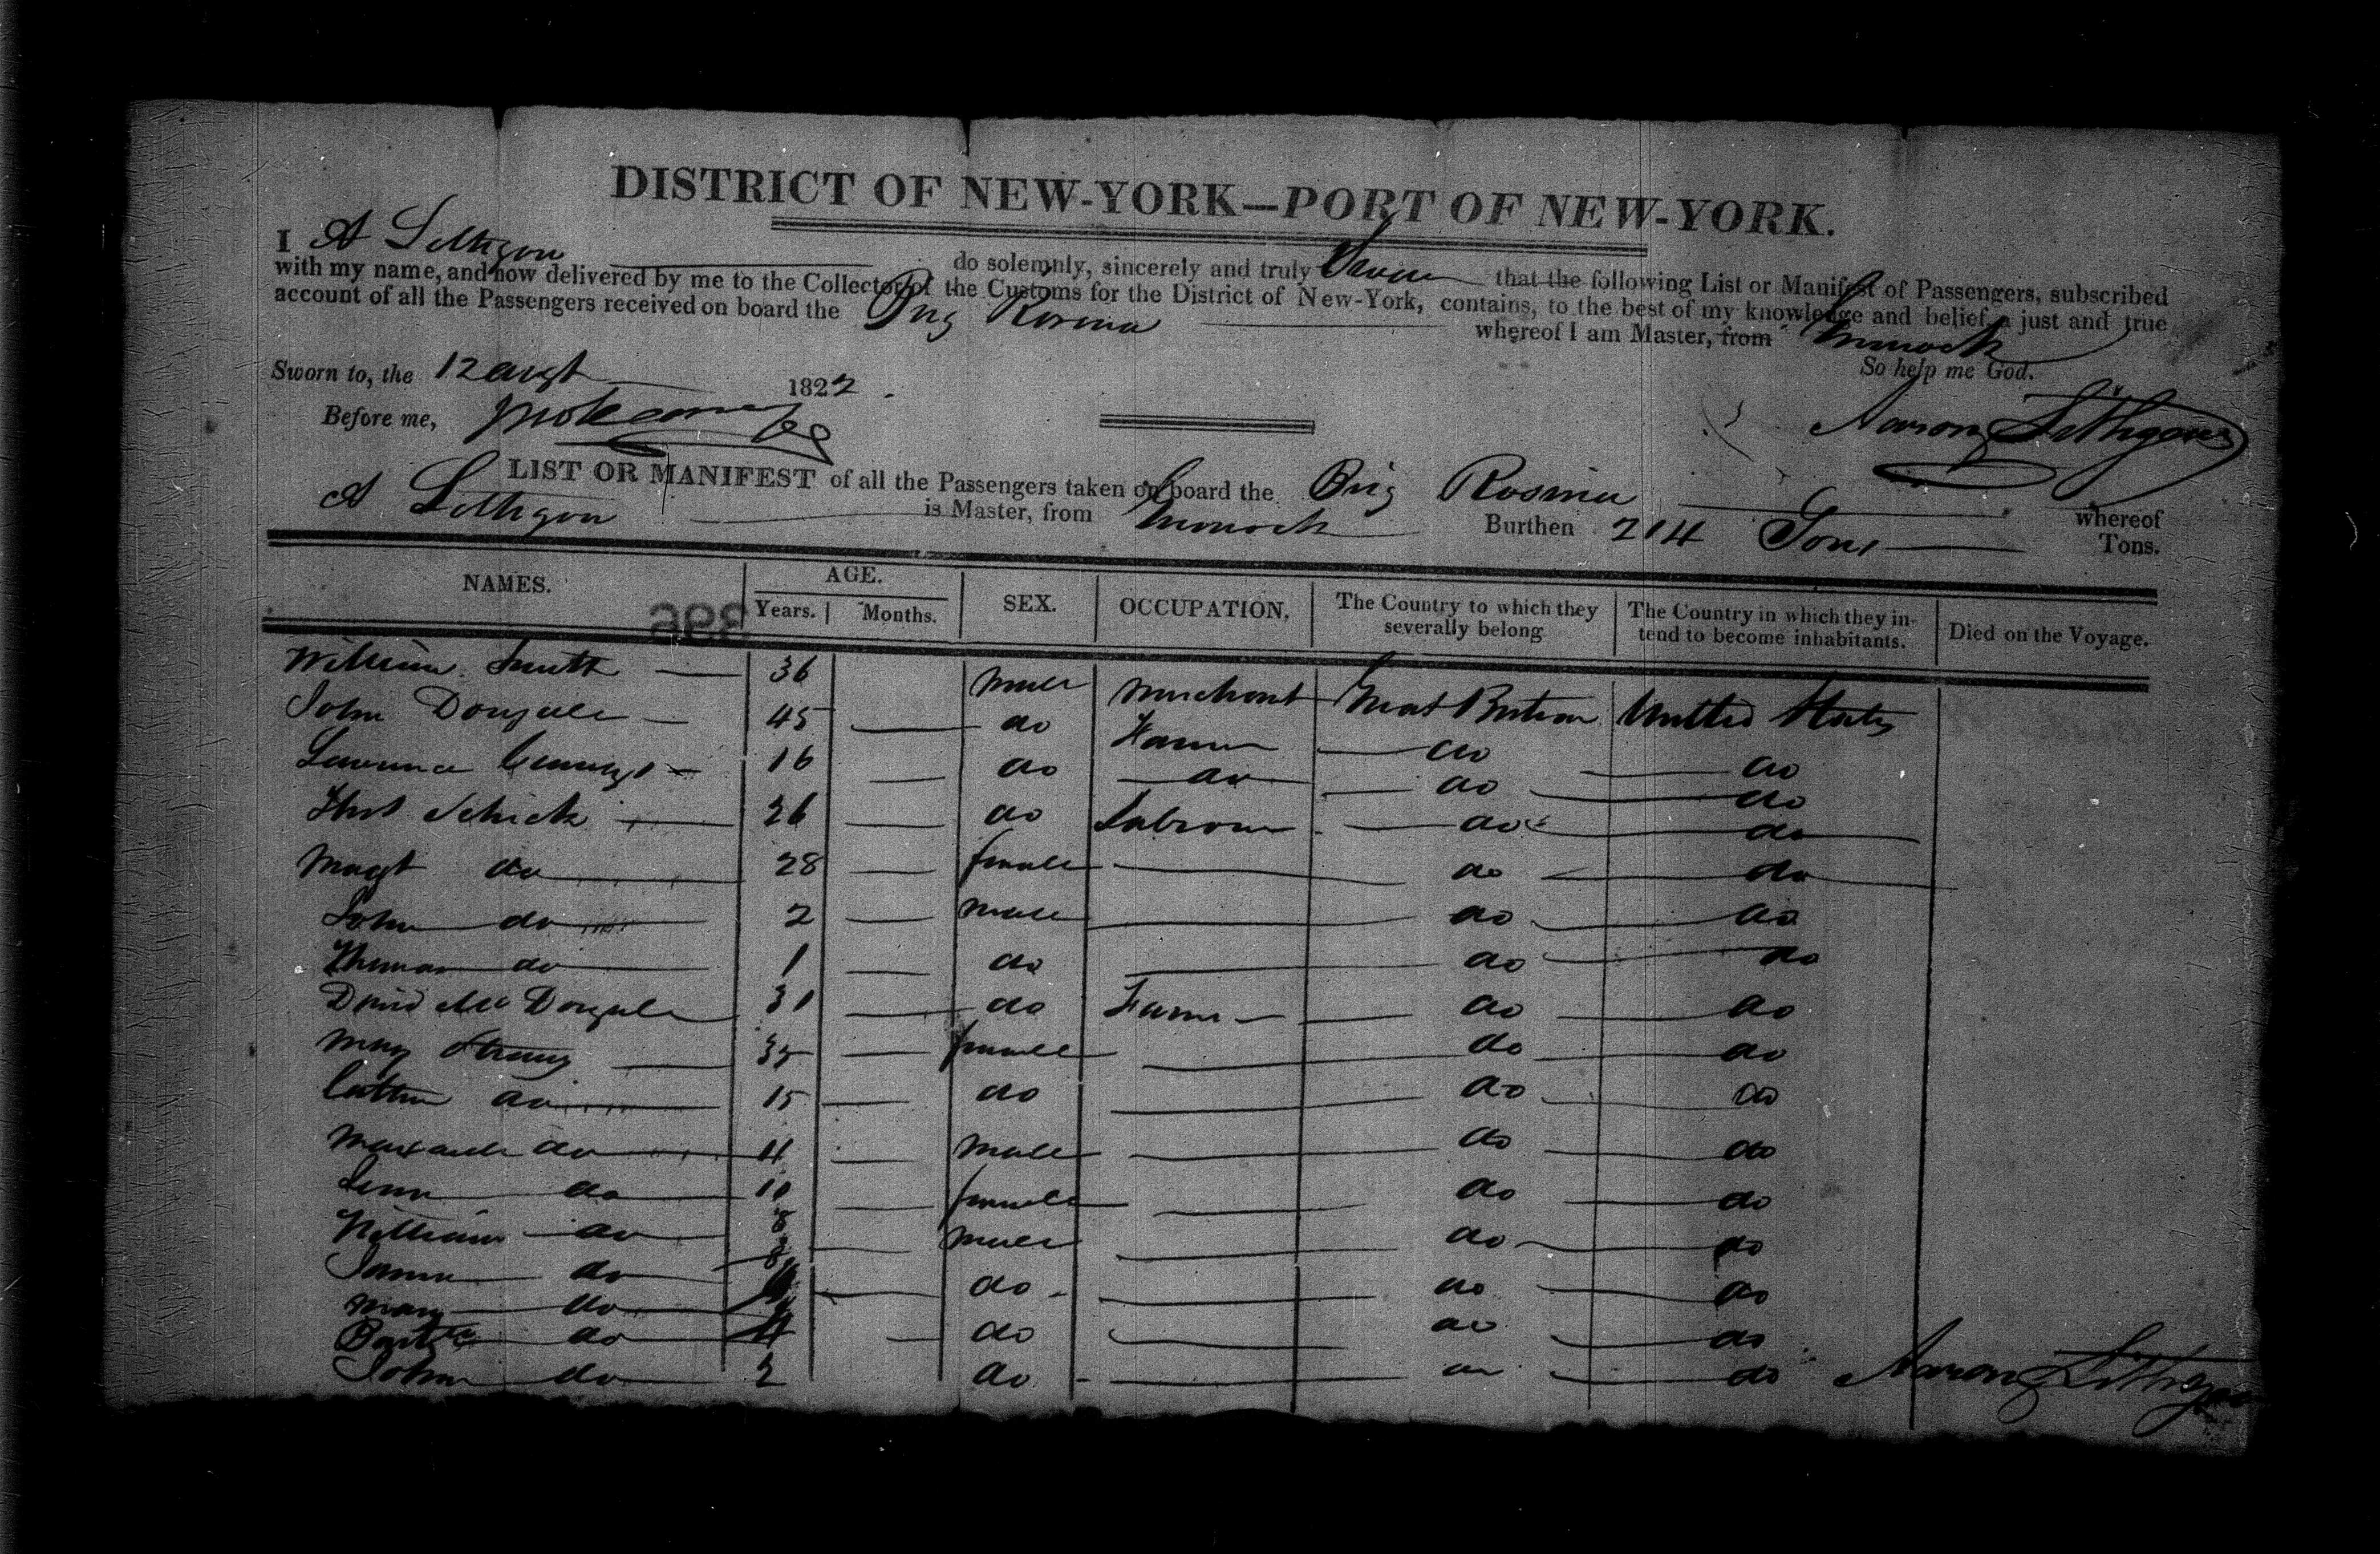 DISTRICT OF NEW-YORK—PORT OF NEW-YORK.
I A Lithgow do solemnly, sincerely and truly that the following List or Manifest of Passengers, subscribed
with my name, and now delivered by me to the Collector of the Customs for the District of New-York, contains, to the best of my knowledge and belief, a just and true
account of all the Passengers received on board the Brig Rosina whereof I am Master, from
So help me God.
Sworn to, the 12 augt 1822.
Before me,
Aaron Lithgow
LIST OR MANIFEST of all the Passengers taken on board the Brig Rosina whereof
A Lithgow is Master, from Burthen 214 Tons Tons.
NAMES. AGE. Years. Months. SEX. OCCUPATION. The Country to which they severally belong The Country in which they intend to become inhabitants. Died on the Voyage.
396
William Smith 36 male merchant Great Britain United States
John Dougall 45 do Farmer do do
16 do do do do
Schick 26 do Labrour do do
Magt do 28 female do do
John do 2 male do do
Thomas do 1 do do do
David Mc Dougale 31 do Farmer do do
Mary Strang 35 female do do
do 15 do do do
do 11 male do do
do 10 female do do
William do 8 male do do
do do do do
Mary do do do do
do
John do 2 do do
Aaron Lithgow